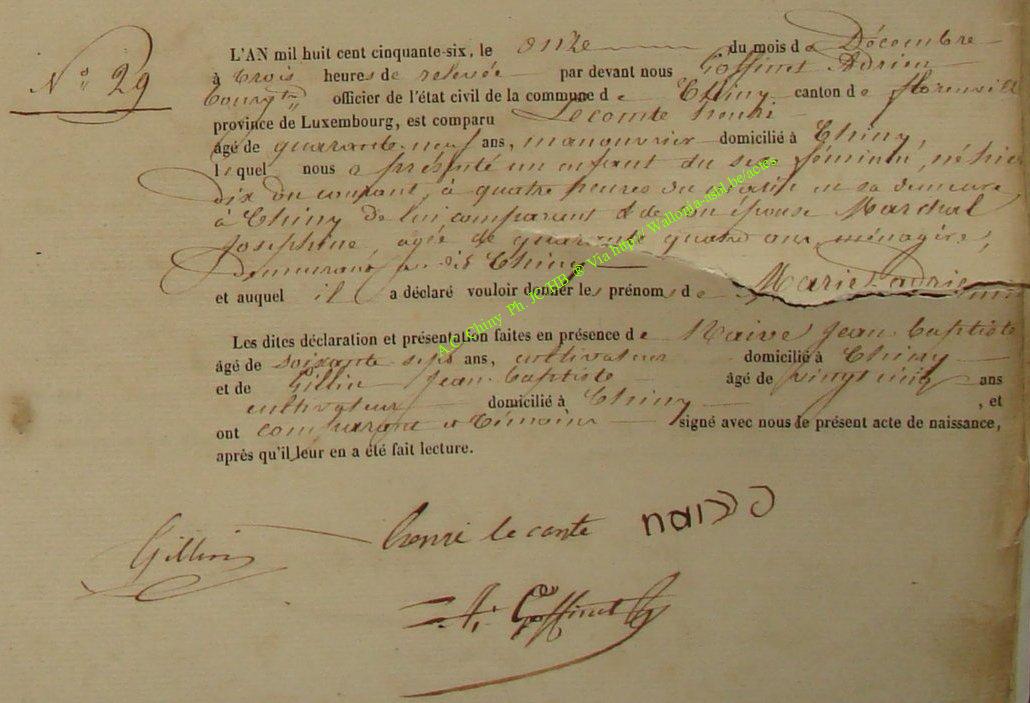 N° 29
L'AN mil huit cent cinquante-six, le onze du mois de Décembre
à trois heures de relevée par devant nous Goffinet Adrien
Bourgtre officier de l'état civil de la commune de Chiny canton de florenvill
province de Luxembourg, est comparu Lecomte henri
âgé de quarante-neuf ans, manouvrier domicilié à Chiny,
lequel nous a présenté un enfant du sexe féminin, né hier
dix du courant, à quatre heures du matin en sa demeure
à Chiny de lui comparant et de son épouse Marchal
Josephine agée de quarante quatre ans, ménagère,
demeurant au dit Chiny
et auquel il a déclaré vouloir donner les prénoms de Marie
Les dites déclaration et présentation faites en présence de Naive Jean-baptiste
âgé de soixante sept ans, cultivateur domicilié à Chiny
et de Gillin Jean-baptiste âgé de vingt cinq ans
cultivateur domicilié à Chiny , et
ont comparant et témoins signé avec nous le présent acte de naissance,
après qu'il leur en a été fait lecture.
A.C. Chiny Ph. JC HB ® Via http:// Wallonia-asbl.be/actes
Gillin
henri le conte
A. Goffinet